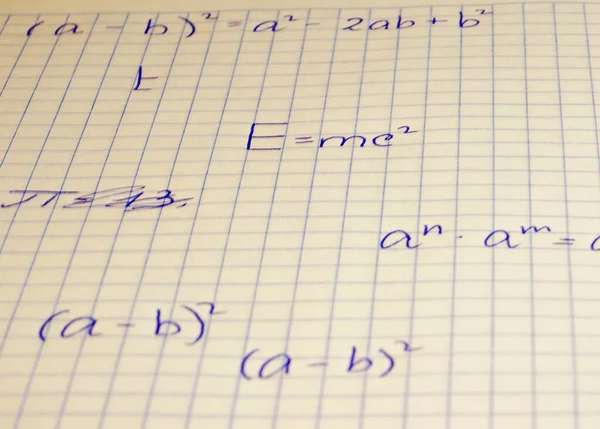 (a - b)² = a² - 2ab + b²
E = mc²
aⁿ · aᵐ =
(a - b)²
(a - b)²